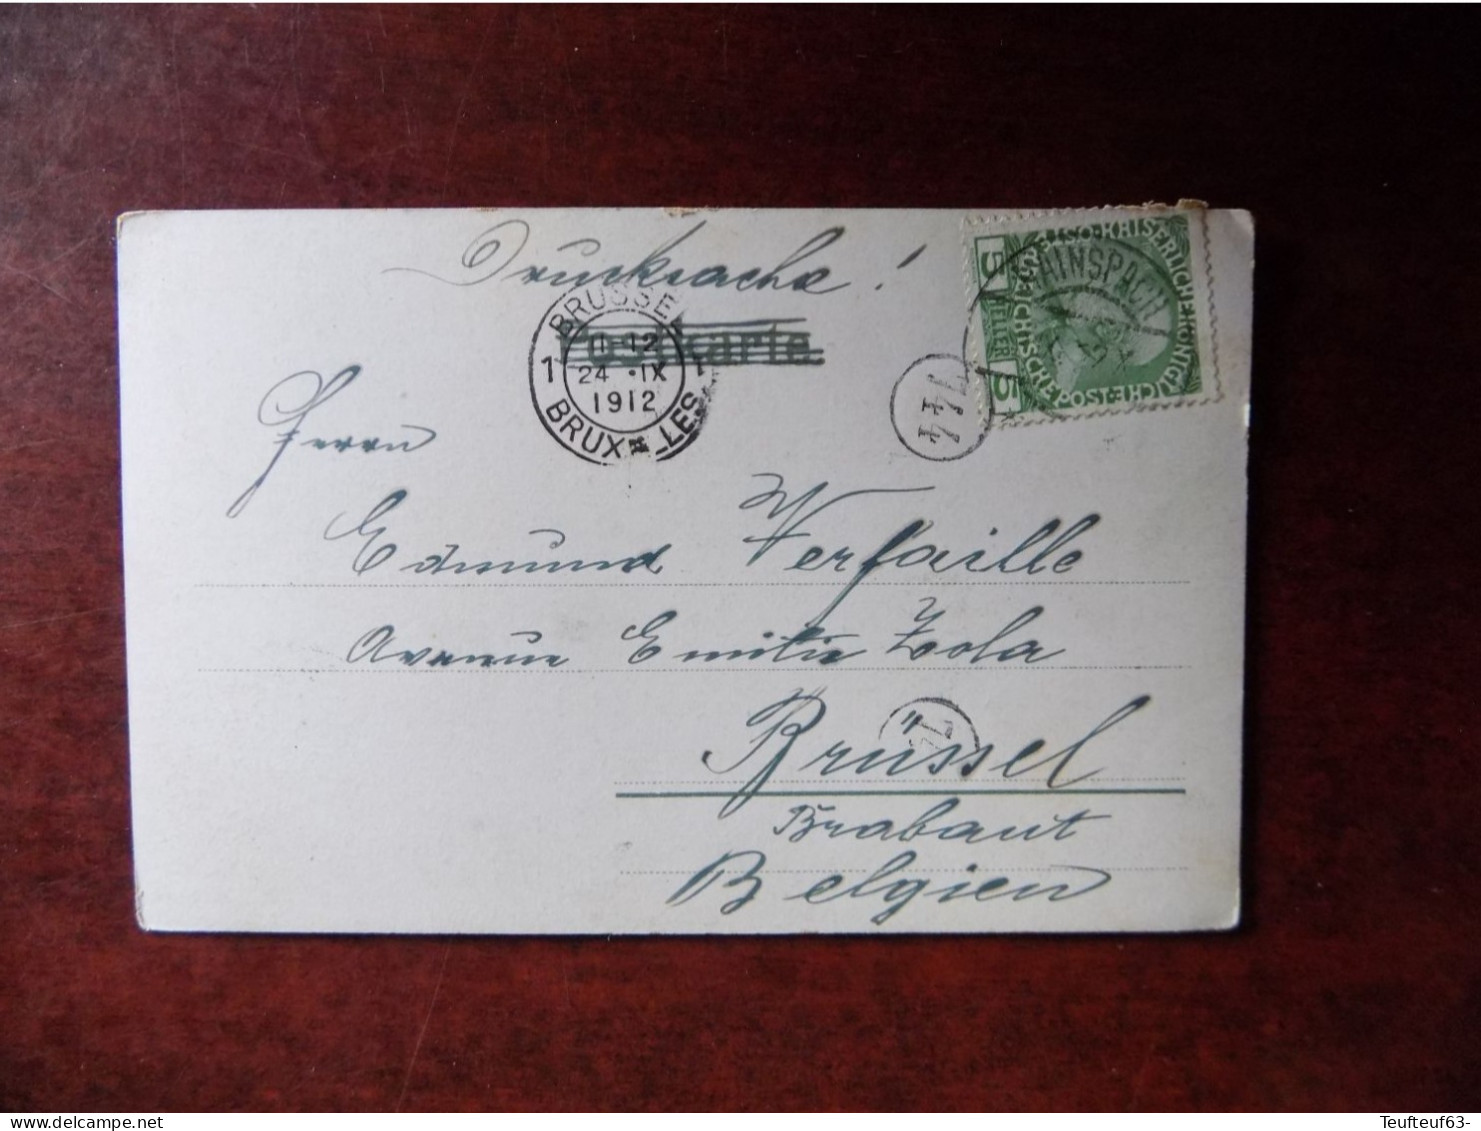 Drucksache!
Postkarte
BRUSSEL
1 11-12 1
24 IX
1912
BRUXELLES
KAISERLICHE KÖNIGLICHE ÖSTERREICHISCHE POST
5 HELLER 5
HAINSPACH
744
Herrn
Edmund Verfaille
Avenue Emilie Zola
Brüssel
Brabant
Belgien
Teufteuf63-